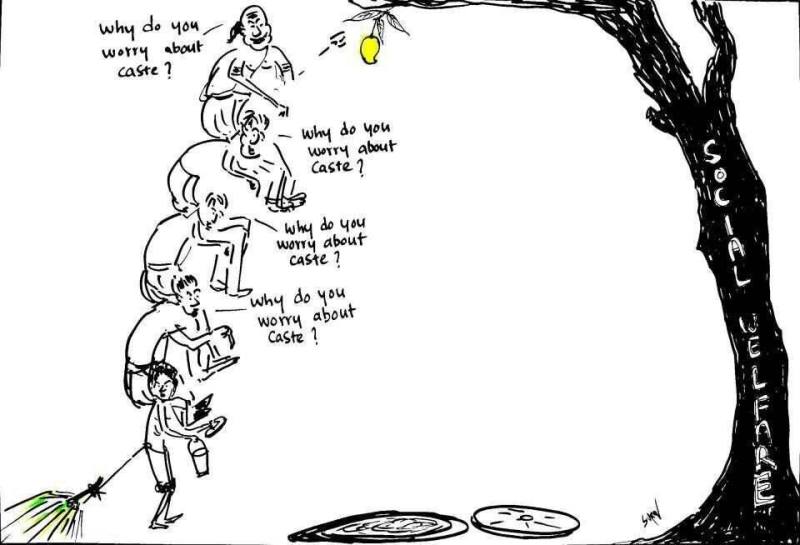 Why do you
worry about
caste?
Why do you
worry about
Caste?
Why do you
worry about
caste?
Why do you
worry about
Caste?
SOCIAL WELFARE